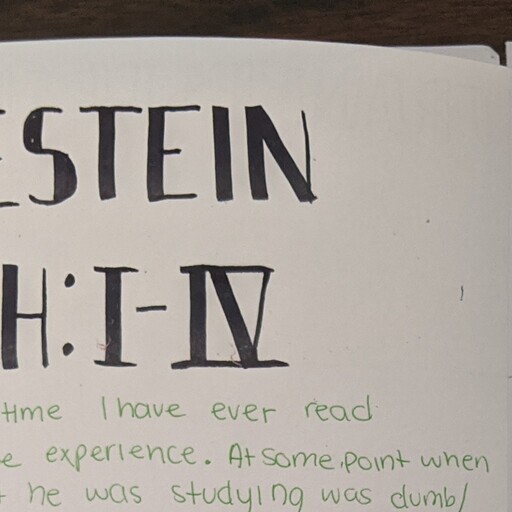 ESTEIN
H: I-IV
time I have ever read
e experience. At some point when
he was studying was dumb/